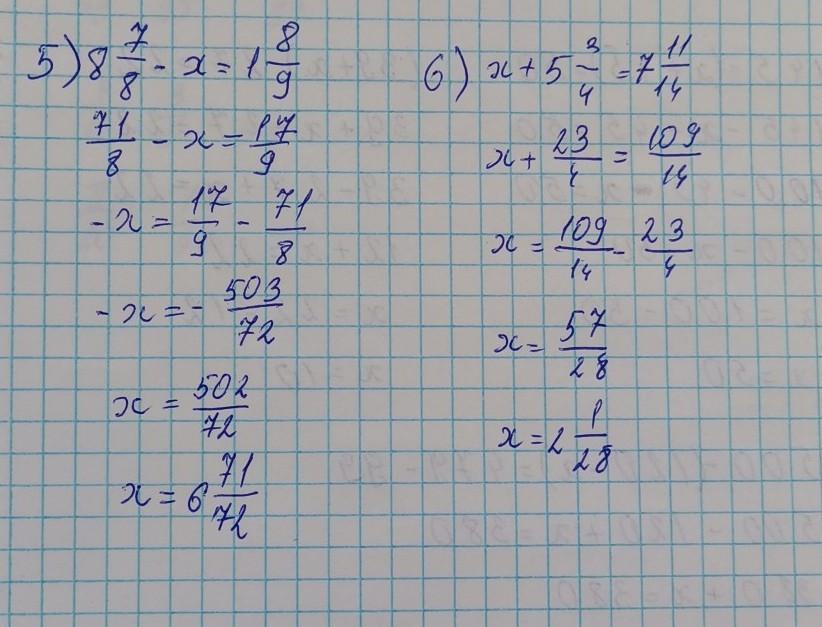 5) 8 7/8 - x = 1 8/9
71/8 - x = 17/9
-x = 17/9 - 71/8
-x = - 503/72
x = 502/72
x = 6 71/72
6) x + 5 3/4 = 7 11/14
x + 23/4 = 109/14
x = 109/14 - 23/4
x = 57/28
x = 2 1/28